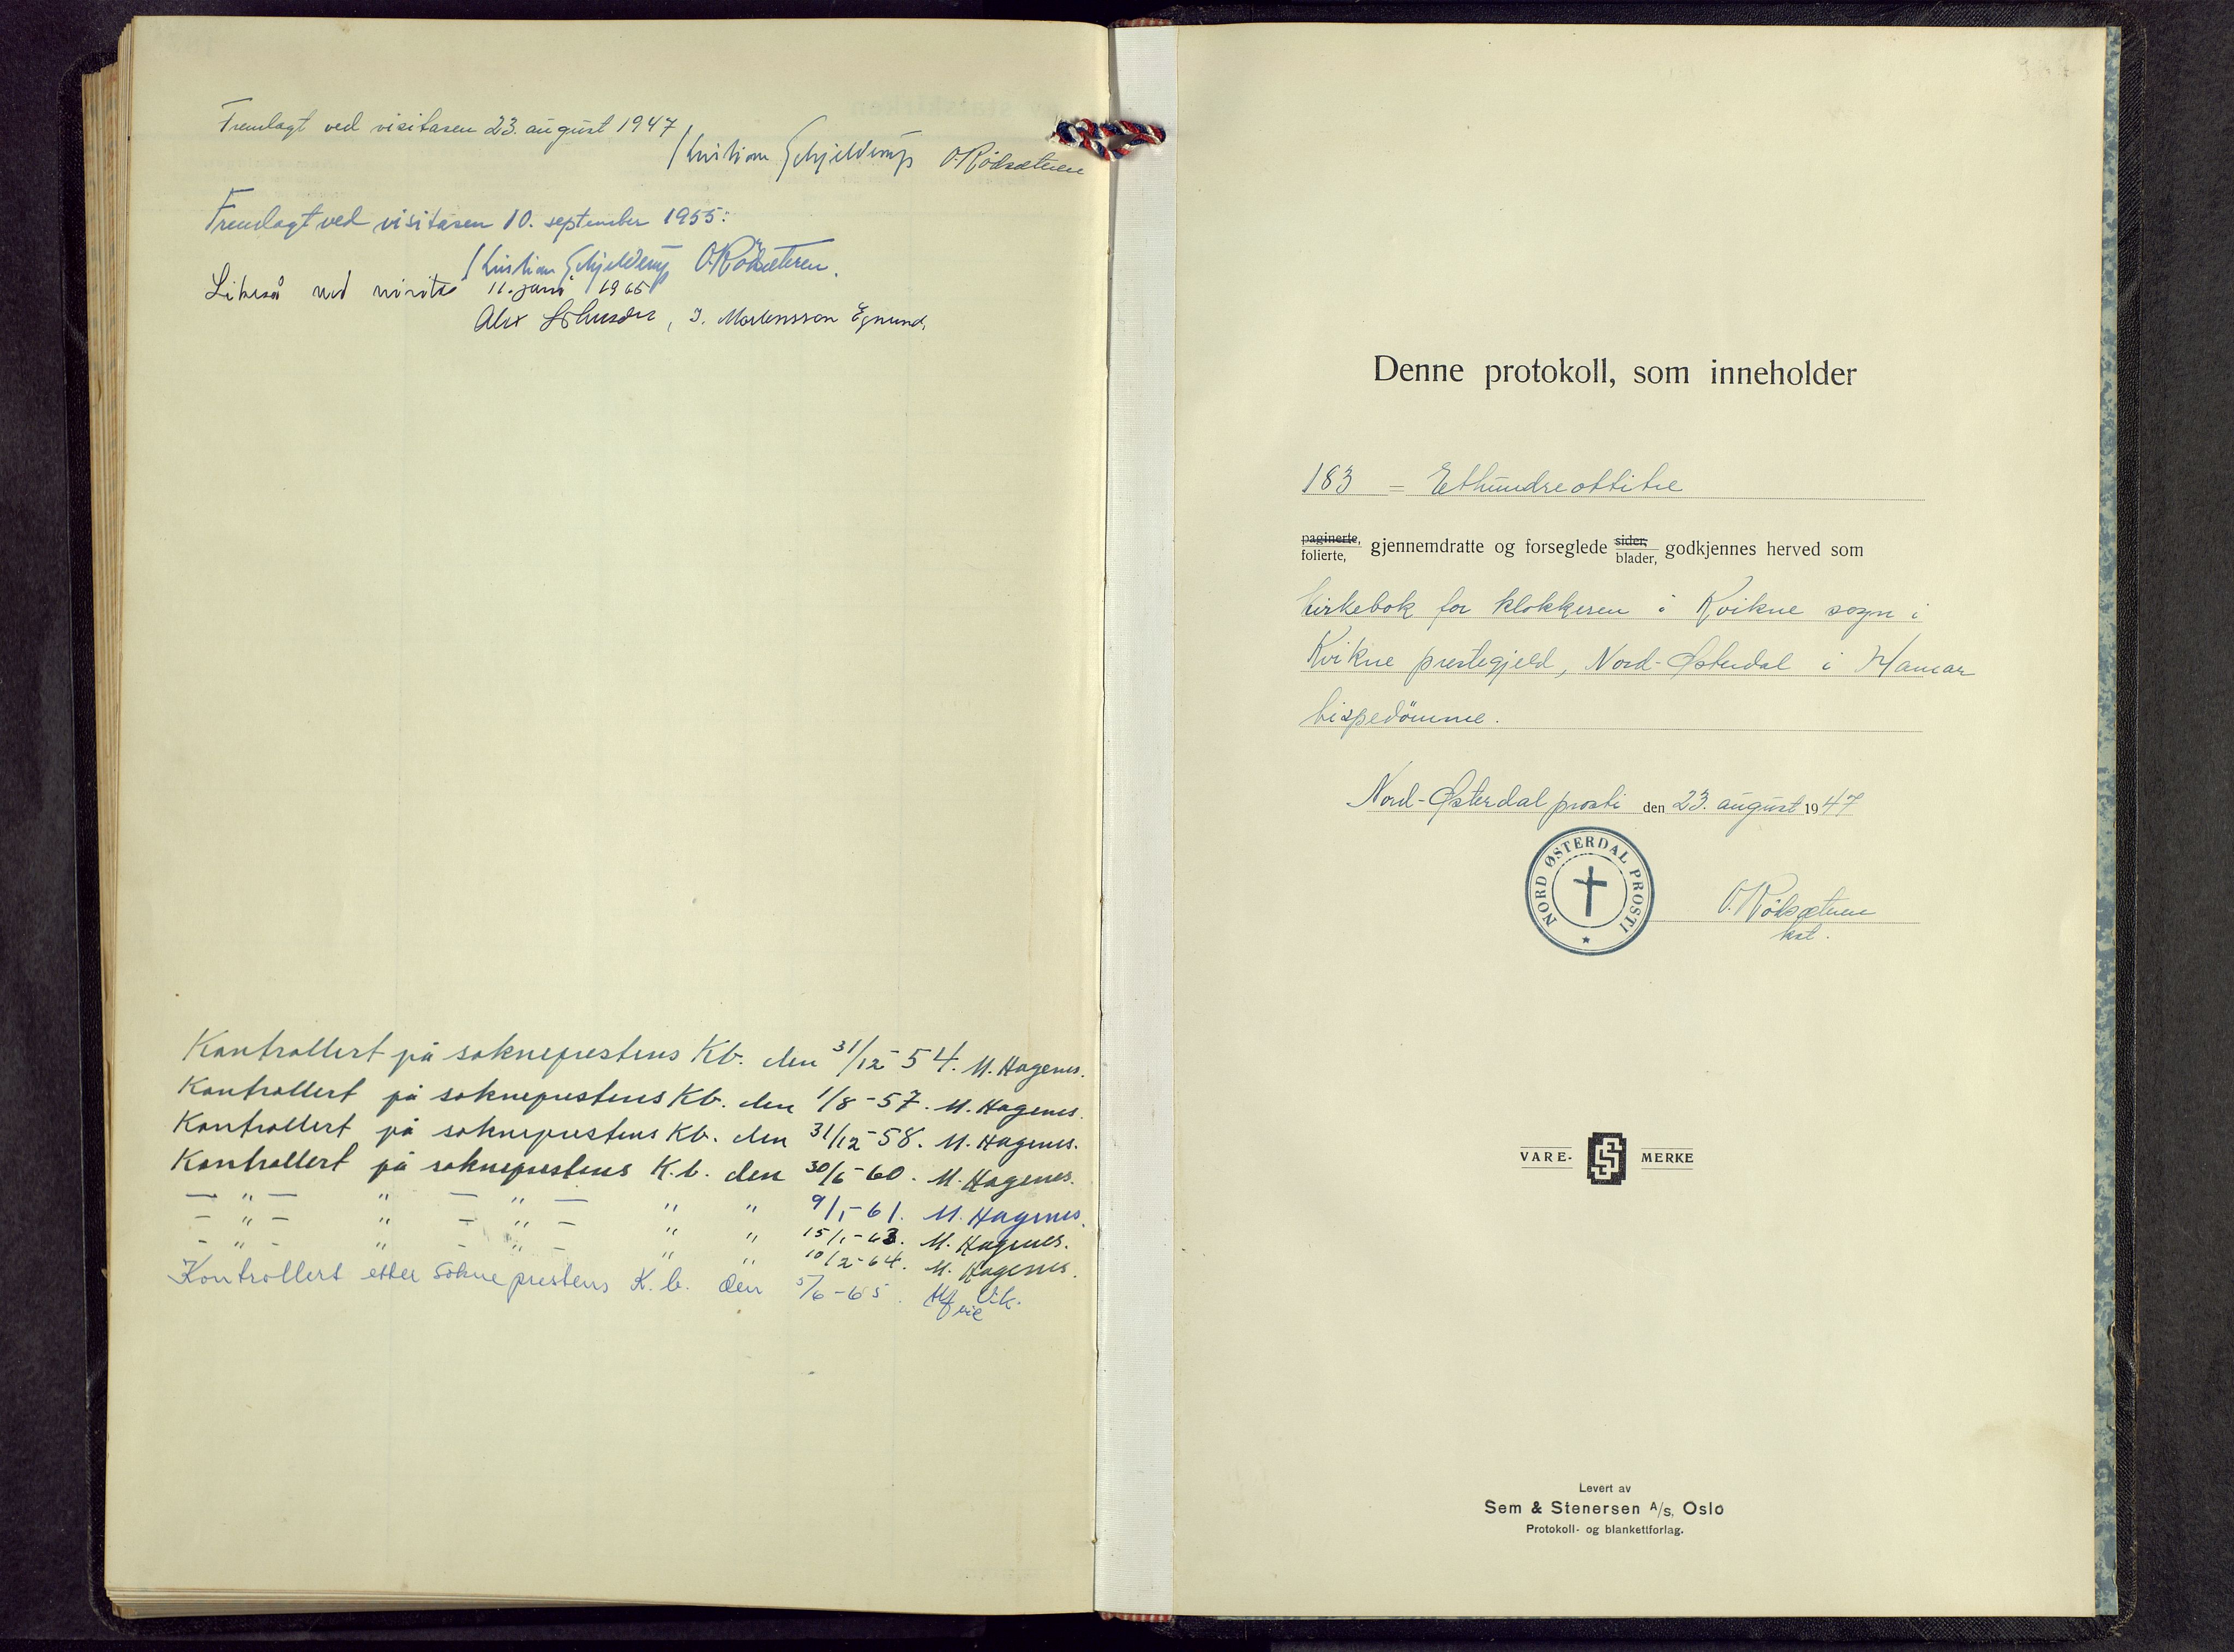 Fremlagt ved visitasen 23. august 1947
Kristian Schjelderup O. Rödsæteren
Fremlagt ved visitasen 10. september 1955:
Kristian Schjelderup O. Rödsæteren.
Likeså ved visitas 11. juni 1966
Alex Johnson, I. Mortensson Egnund.
Kontrollert på sokneprestens Kb. den 31/12-54. M. Hagenes.
Kontrollert på sokneprestens Kb. den 1/8-57. M. Hagenes.
Kontrollert på sokneprestens Kb. den 31/12-58. M. Hagenes.
Kontrollert på sokneprestens K.b. den 30/6-60. M. Hagenes.
— " — " — " — " " 9/1-61. M. Hagenes.
— " — " — " — " " 15/1-63. M. Hagenes.
— " — " — " — " " 10/2-64. M. Hagenes.
Kontrollert etter sokneprestens K.b. den 5/6-65.
Denne protokoll, som inneholder
183 = Ethundreottitre
paginerte, folierte, gjennemdratte og forseglede sider, blader, godkjennes herved som
kirkebok for klokkeren i Kvikne sogn i
Kvikne prestegjeld, Nord-Østerdal i Hamar
bispedömme.
Nord-Østerdal prosti den 23. august 1947
NORD ØSTERDAL PROSTI
O. Rödsæteren
kst.
VARE- SS MERKE
Levert av
Sem & Stenersen A/s, Oslo
Protokoll- og blankettforlag.